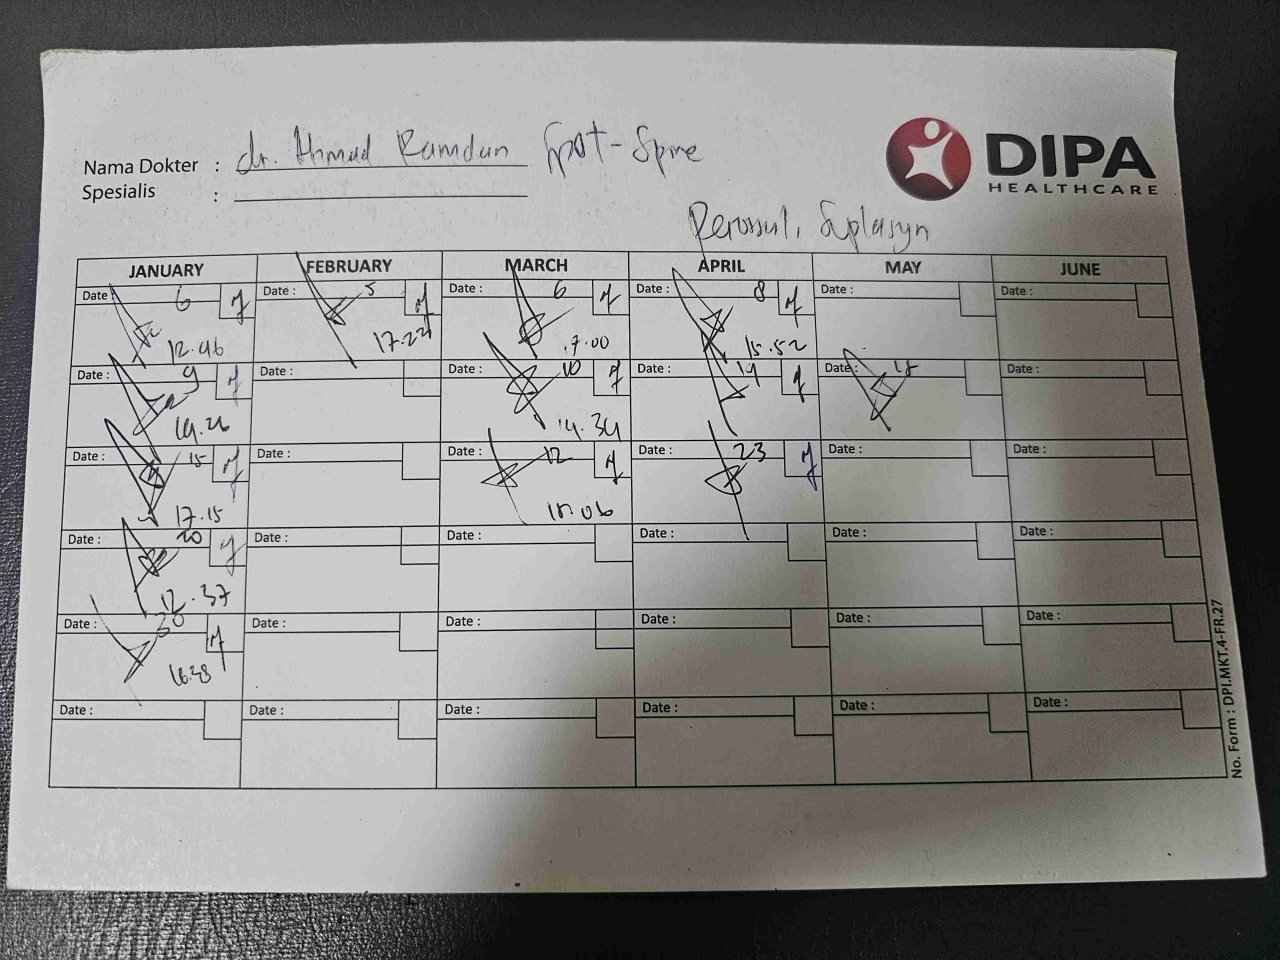 Nama Dokter : dr. Ahmad Ramdan SpOT-Spine
Spesialis :
DIPA
HEALTHCARE
JANUARY FEBRUARY MARCH APRIL MAY JUNE
Date : 6 Date : 5 Date : 6 Date : 8 Date : Date :
12.46 17.22 17.00 15.52
Date : 9 Date : Date : 10 Date : 14 Date : 18 Date :
14.26 14.34
Date : 15 Date : Date : 12 Date : 23 Date : Date :
17.15 18.06
Date : 20 Date : Date : Date : Date : Date :
12.37
Date : 30 Date : Date : Date : Date : Date :
16.38
Date : Date : Date : Date : Date : Date :
No. Form : DPI.MKT.4-FR.27